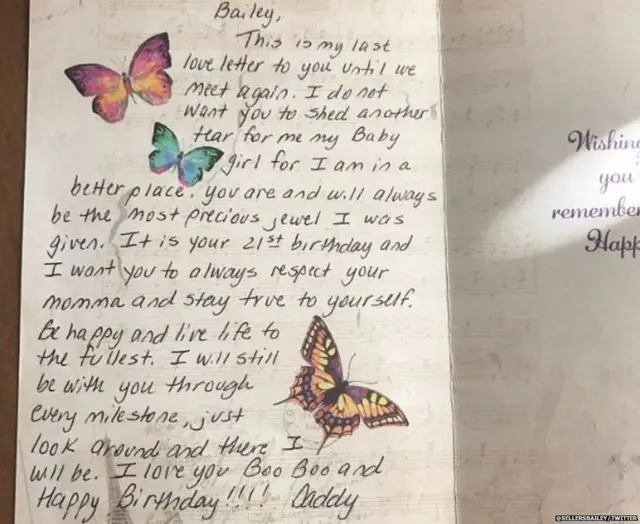 Bailey,
This is my last
love letter to you until we
meet again. I do not
want you to shed another
tear for me my Baby
girl for I am in a
better place. You are and will always
be the most precious jewel I was
given. It is your 21st birthday and
I want you to always respect your
momma and stay true to yourself.
Be happy and live life to
the fullest. I will still
be with you through
every milestone, just
look around and there I
will be. I love you Boo Boo and
Happy Birthday!!!! Daddy
Wishing
you
remember
Happ
@SELLERSBAILEY/TWITTER